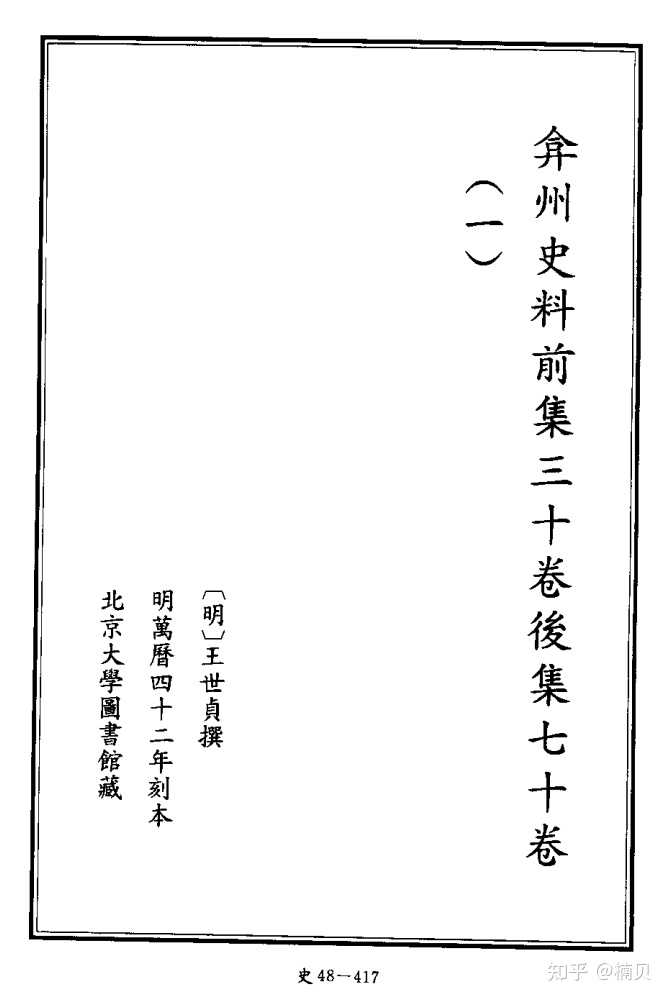 弇州史料前集三十卷後集七十卷
（一）
〔明〕王世貞撰
明萬曆四十二年刻本
北京大學圖書館藏
史 48—417
知乎 @楠贝